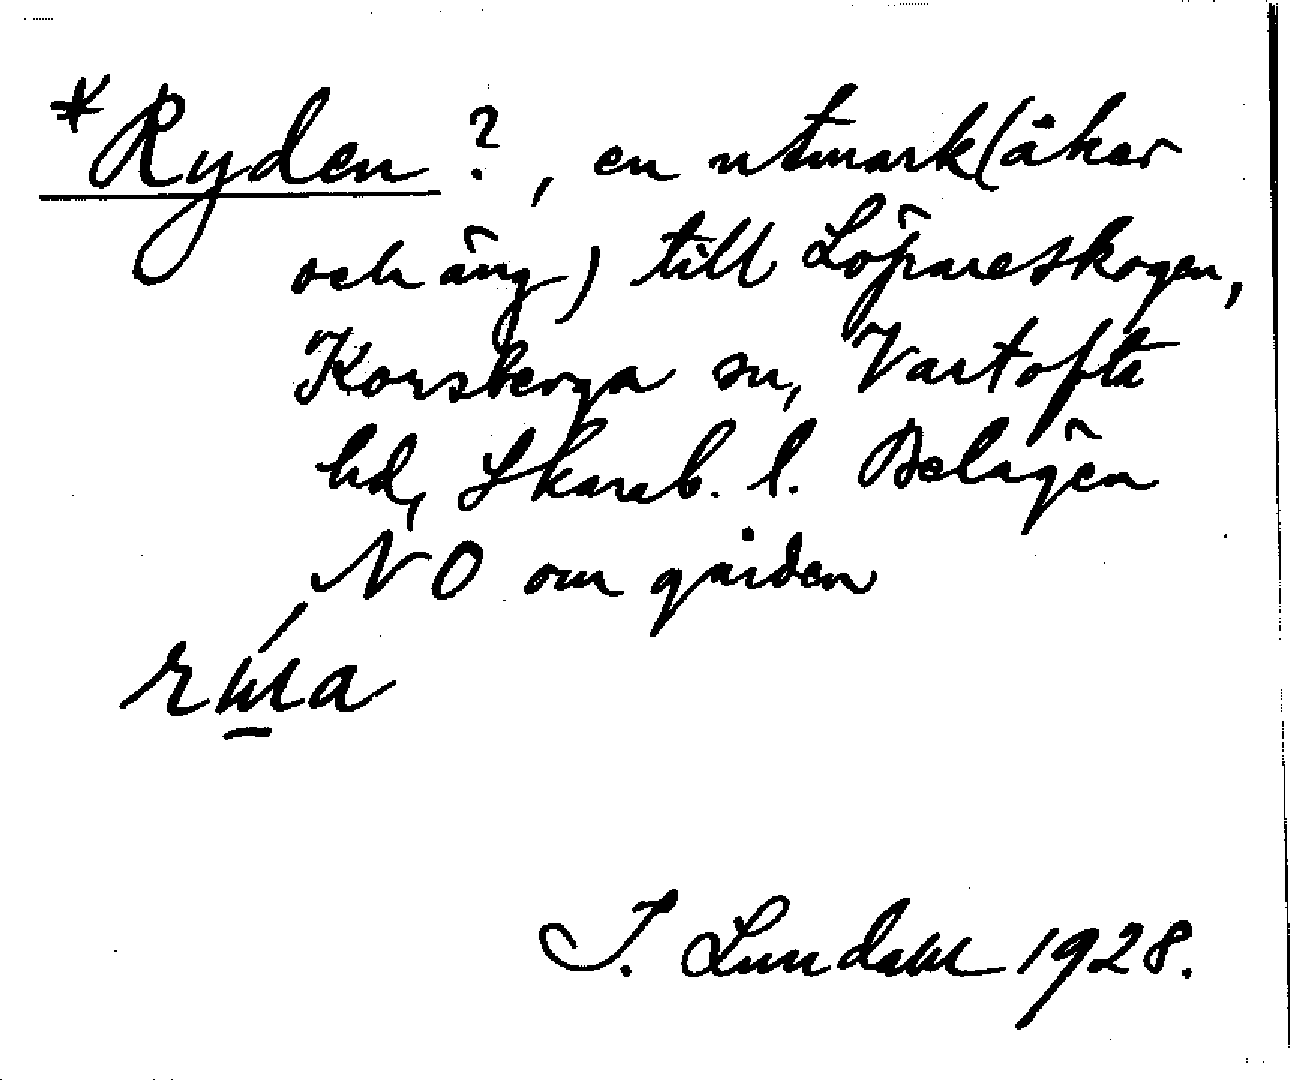 *Ryden ?, en utmark (åker
och äng) till Löpareskogen,
Korsberga sn, Vartofta
hd, Skarab. l. Belägen
NO om gården
I. Lundahl 1928.